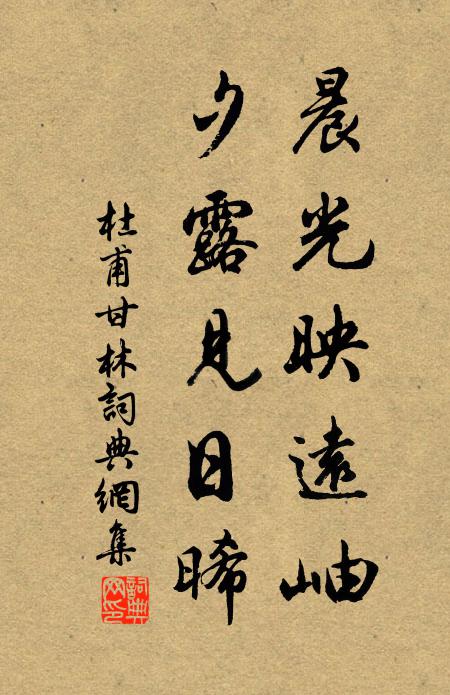 晨光映遠岫
夕露見日晞
杜甫甘林詞典網集
詞典网印